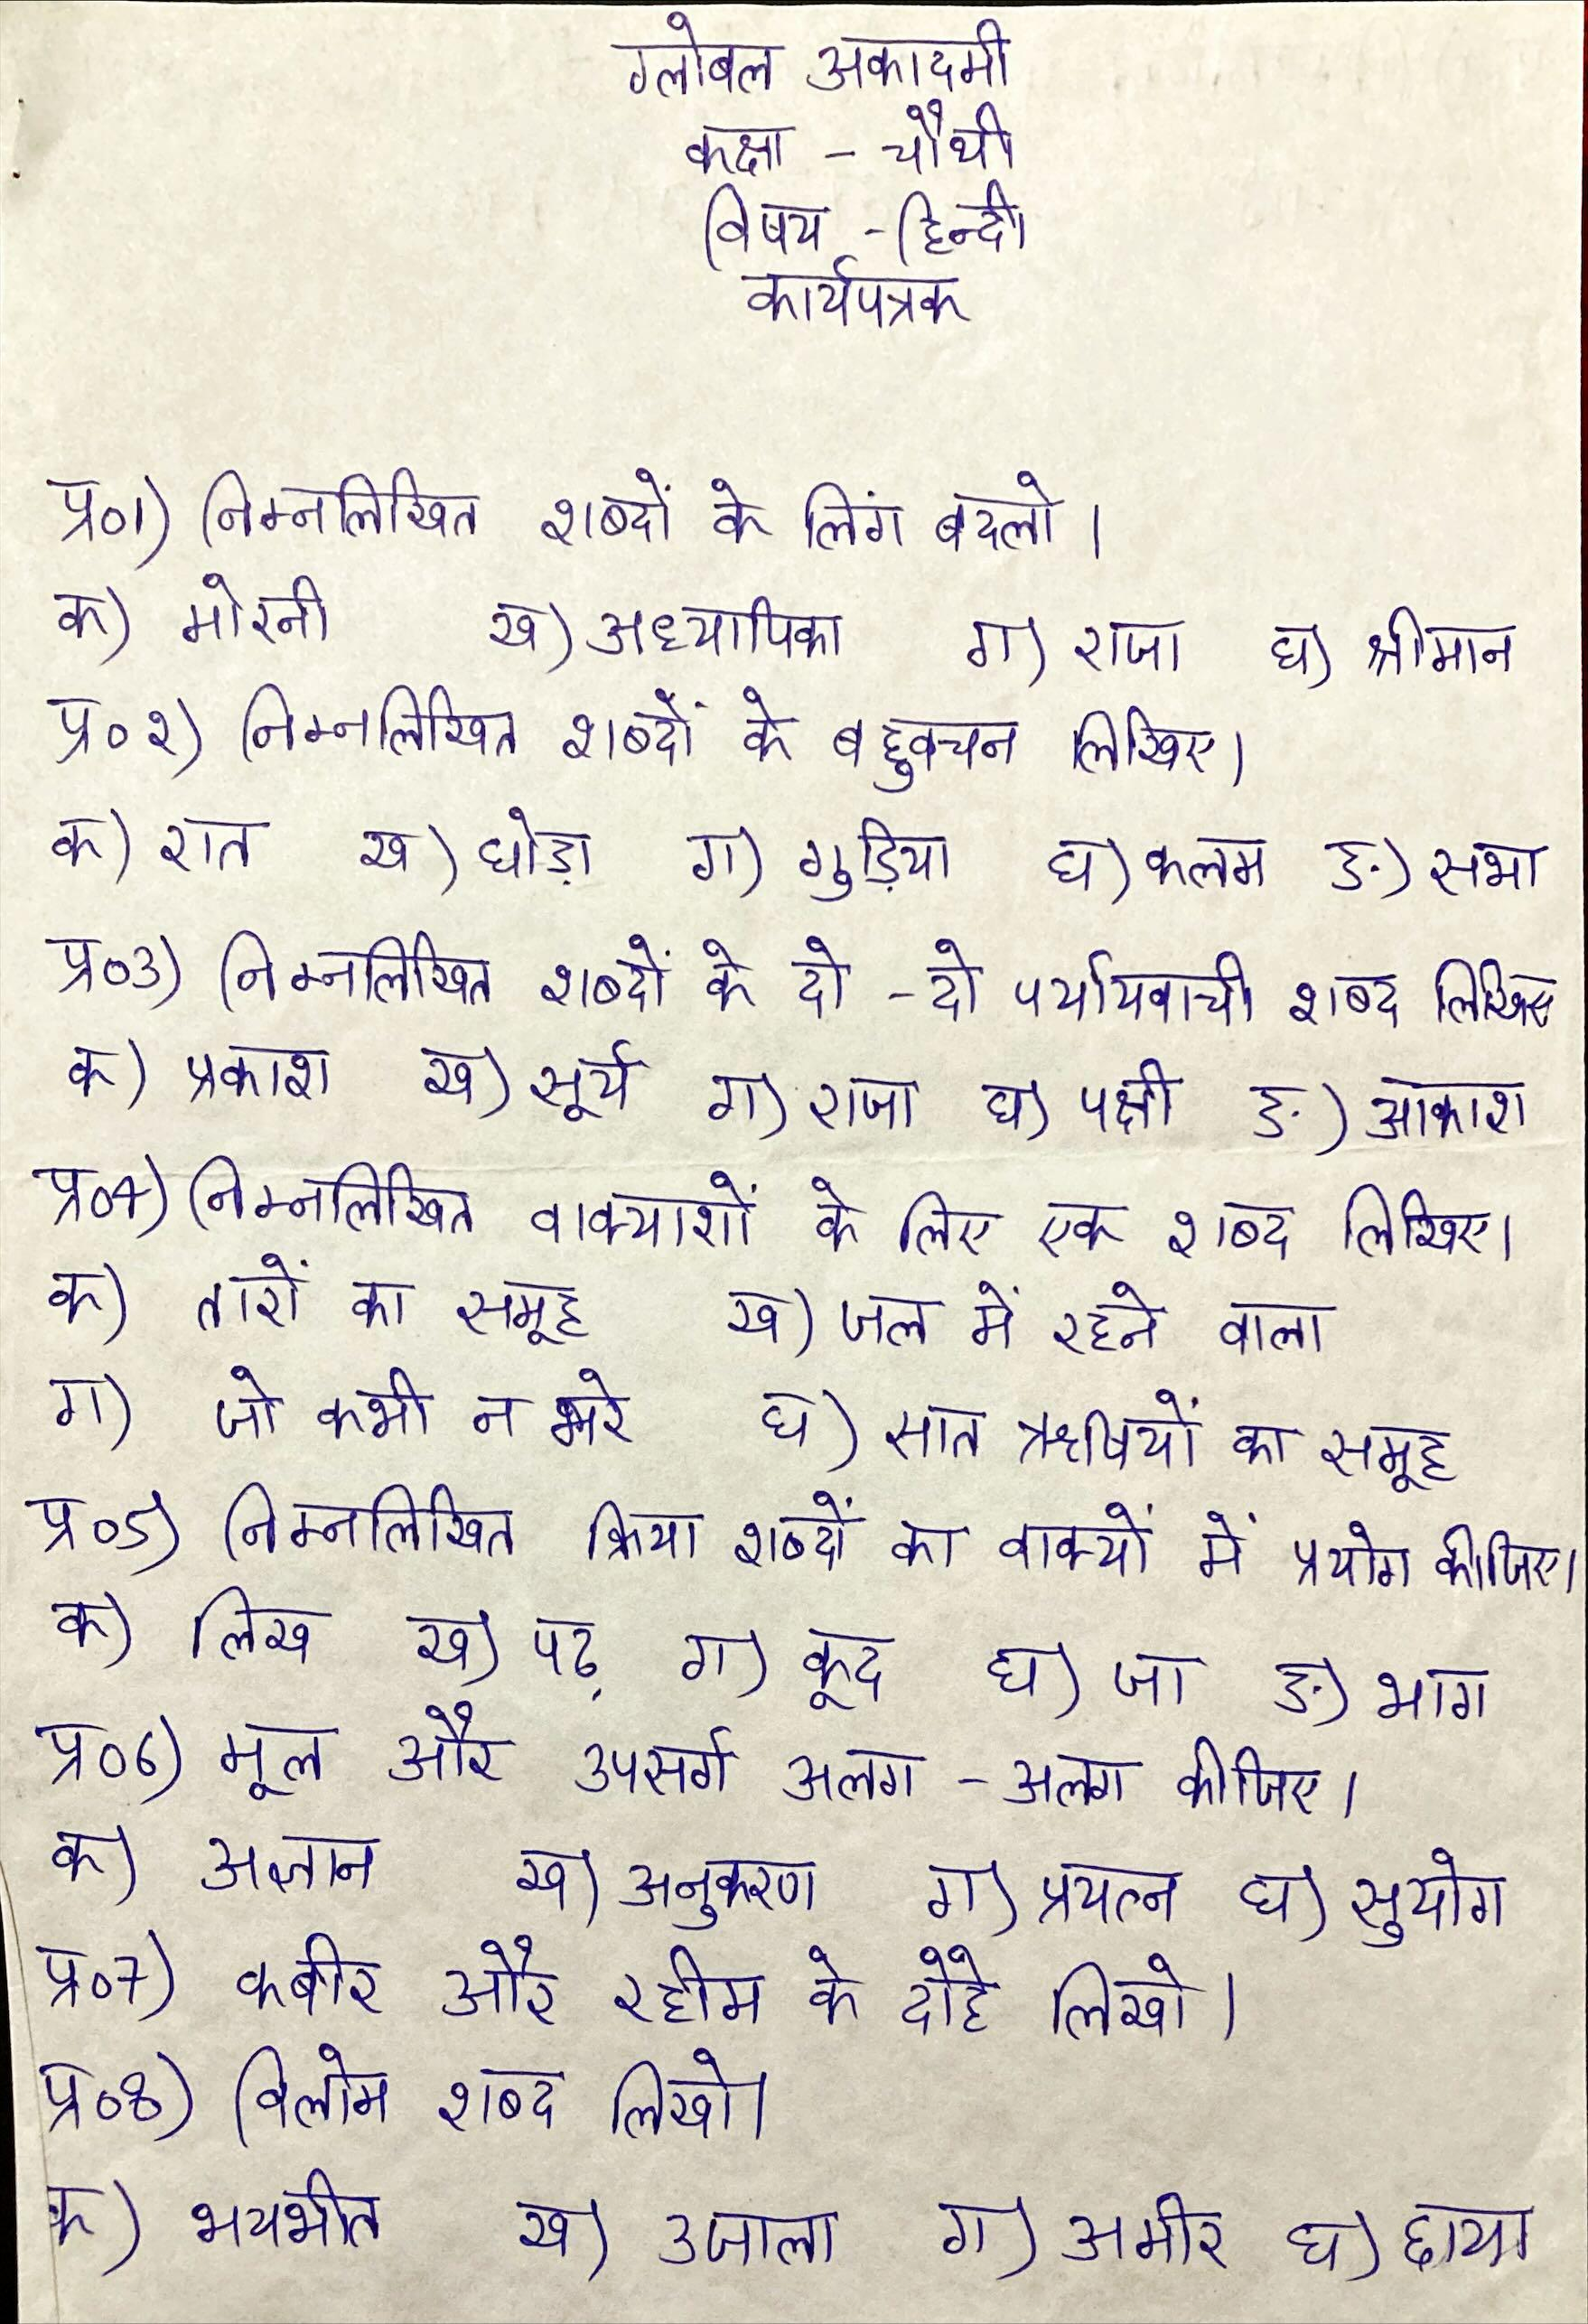 ग्लोबल अकादमी
कक्षा - चौथी
विषय - हिन्दी
कार्यपत्रक
प्र०1) निम्नलिखित शब्दों के लिंग बदलो।
क) मोरनी ख) अध्यापिका ग) राजा घ) श्रीमान
प्र०२) निम्नलिखित शब्दों के बहुवचन लिखिए।
क) रात ख) घोड़ा ग) गुड़िया घ) कलम ङ) सभा
प्र०3) निम्नलिखित शब्दों के दो - दो पर्यायवाची शब्द लिखिए
क) प्रकाश ख) सूर्य ग) राजा घ) पक्षी ङ) आकाश
प्र०4) निम्नलिखित वाक्याशों के लिए एक शब्द लिखिए।
क) तारों का समूह ख) जल में रहने वाला
ग) जो कभी न मरे घ) सात ऋषियों का समूह
प्र०5) निम्नलिखित क्रिया शब्दों का वाक्यों में प्रयोग कीजिए।
क) लिख ख) पढ़ ग) कूद घ) जा ङ) भाग
प्र०6) मूल और उपसर्ग अलग - अलग कीजिए।
क) अज्ञान ख) अनुकरण ग) प्रयत्न घ) सुयोग
प्र०7) कबीर और रहीम के दोहे लिखो।
प्र०8) विलोम शब्द लिखो।
क) भयभीत ख) उजाला ग) अमीर घ) छाया